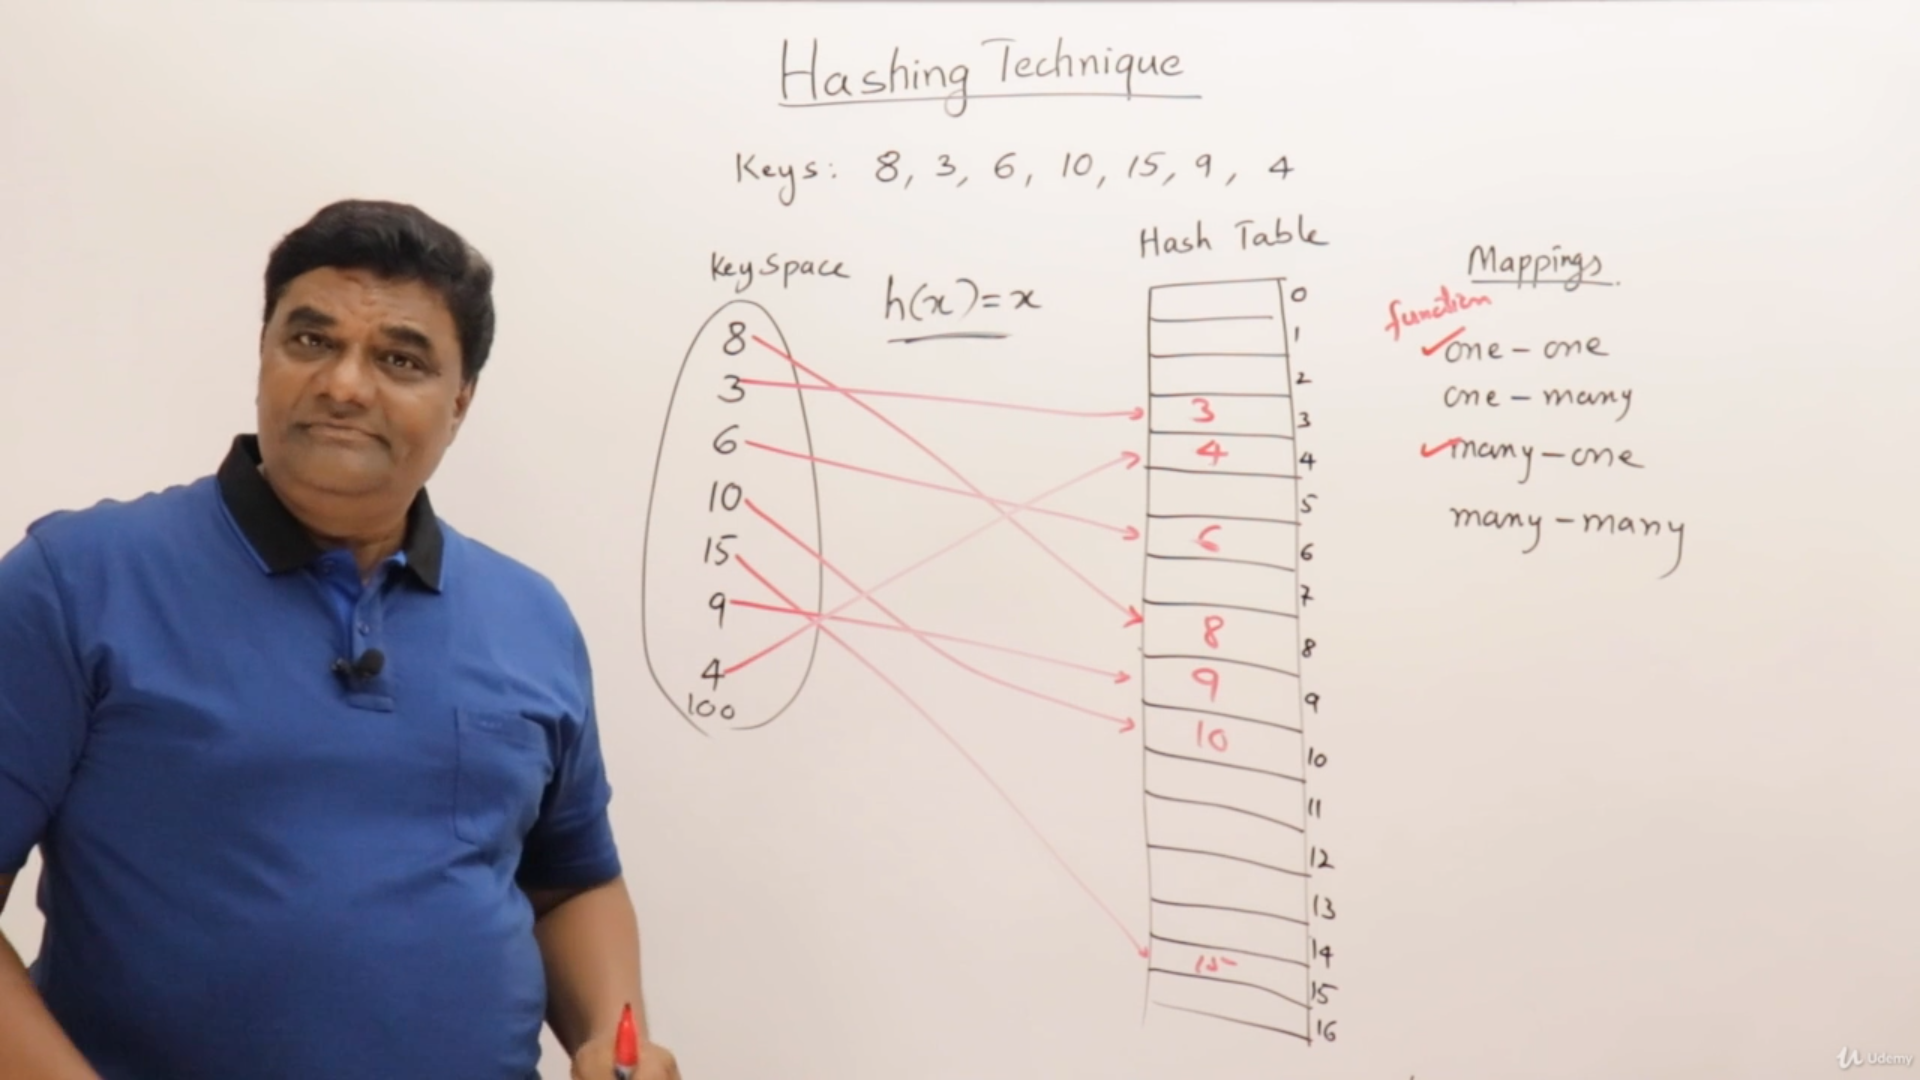 Hashing Technique
Keys: 8, 3, 6, 10, 15, 9, 4
Key Space
h(x)=x
8
3
6
10
15
9
4
100
Hash Table
0
1
2
3 3
4 4
5
6 6
7
8 8
9 9
10 10
11
12
13
14
15 15
16
Mappings
function
✓one-one
one-many
✓many-one
many-many
Udemy